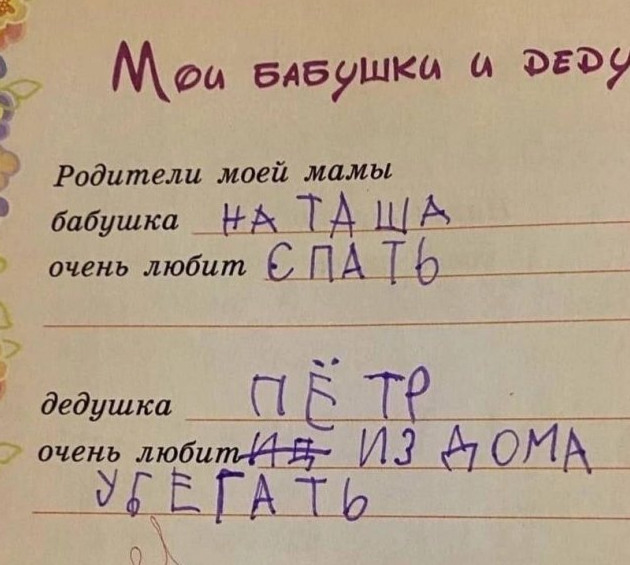 Мои бабушки и деду
Родители моей мамы
бабушка НАТАША
очень любит СПАТЬ
дедушка ПЁТР
очень любит ИЗ ДОМА
УБЕГАТЬ